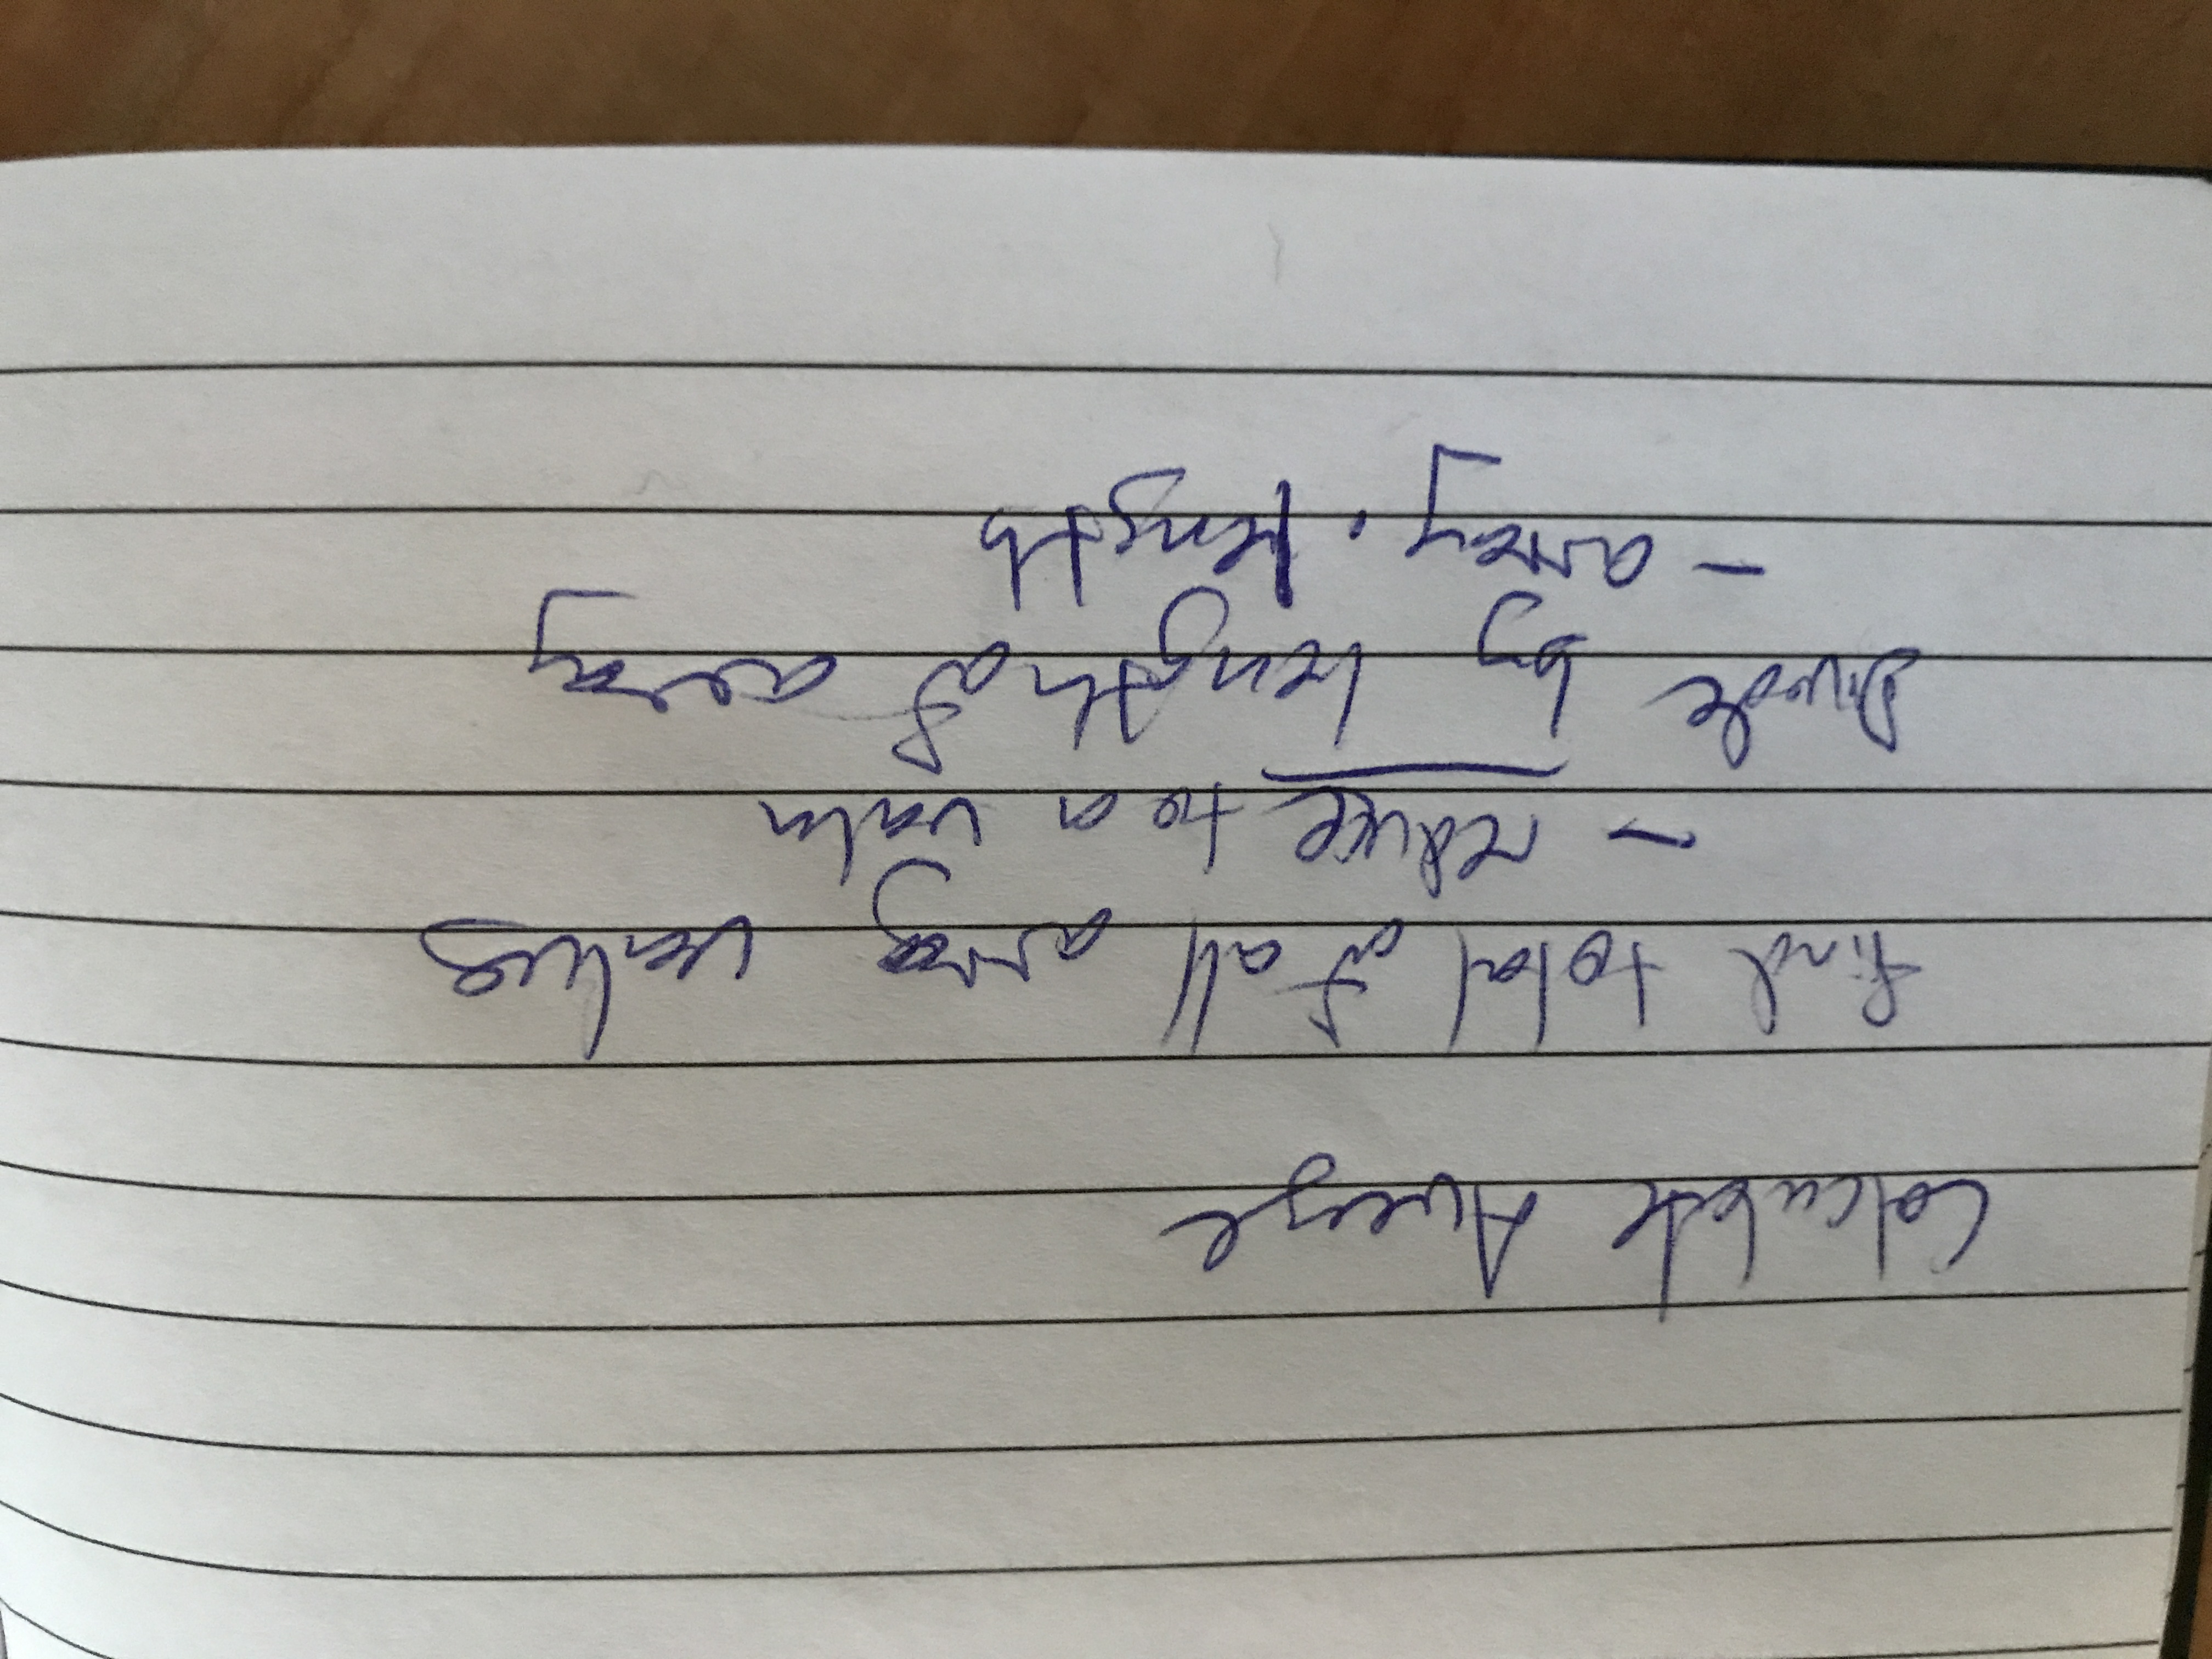 Calculate Average
find total of all array values
- reduce to a value
Divide by length of array
- array.length